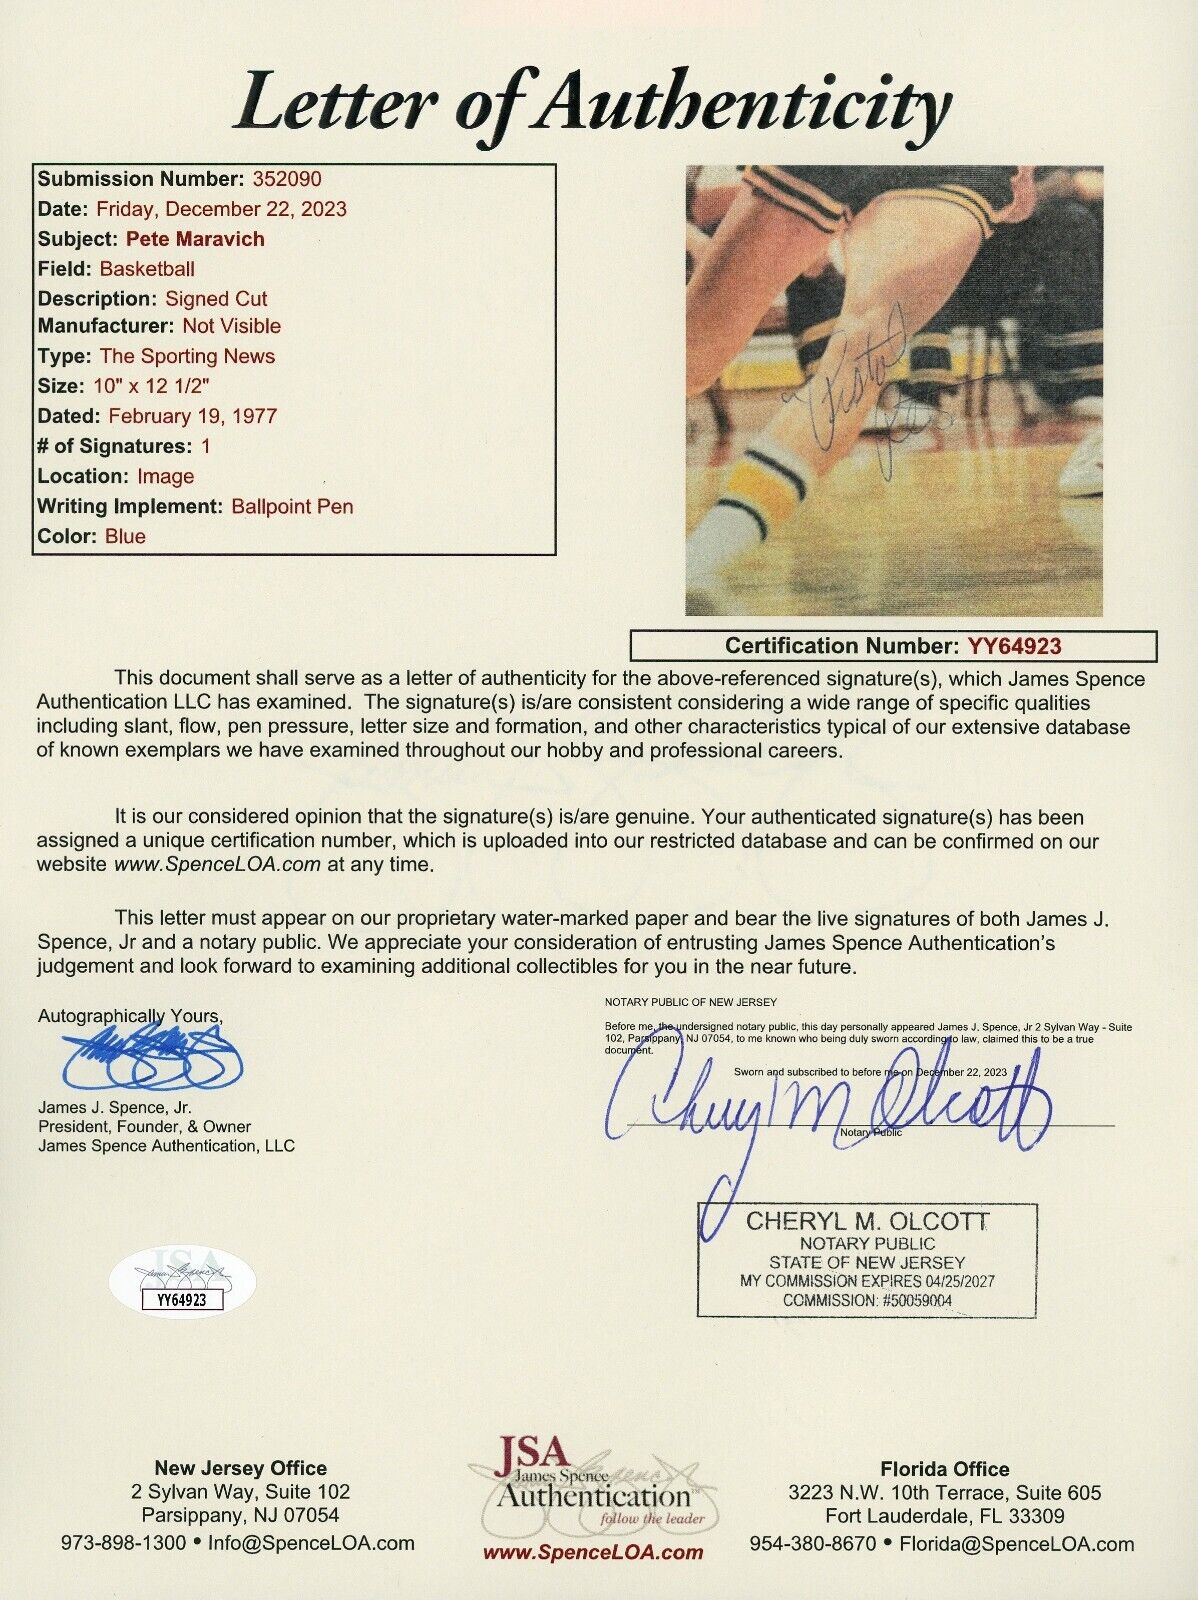 Letter of Authenticity
Submission Number: 352090
Date: Friday, December 22, 2023
Subject: Pete Maravich
Field: Basketball
Description: Signed Cut
Manufacturer: Not Visible
Type: The Sporting News
Size: 10" x 12 1/2"
Dated: February 19, 1977
# of Signatures: 1
Location: Image
Writing Implement: Ballpoint Pen
Color: Blue
"Pistol
Pete"
Certification Number: YY64923
This document shall serve as a letter of authenticity for the above-referenced signature(s), which James Spence
Authentication LLC has examined. The signature(s) is/are consistent considering a wide range of specific qualities
including slant, flow, pen pressure, letter size and formation, and other characteristics typical of our extensive database
of known exemplars we have examined throughout our hobby and professional careers.
It is our considered opinion that the signature(s) is/are genuine. Your authenticated signature(s) has been
assigned a unique certification number, which is uploaded into our restricted database and can be confirmed on our
website www.SpenceLOA.com at any time.
This letter must appear on our proprietary water-marked paper and bear the live signatures of both James J.
Spence, Jr and a notary public. We appreciate your consideration of entrusting James Spence Authentication's
judgement and look forward to examining additional collectibles for you in the near future.
Autographically Yours,
James J. Spence, Jr.
President, Founder, & Owner
James Spence Authentication, LLC
NOTARY PUBLIC OF NEW JERSEY
Before me, the undersigned notary public, this day personally appeared James J. Spence, Jr 2 Sylvan Way - Suite
102, Parsippany, NJ 07054, to me known who being duly sworn according to law, claimed this to be a true
document.
Sworn and subscribed to before me on December 22, 2023
Cheryl M Olcott
Notary Public
CHERYL M. OLCOTT
NOTARY PUBLIC
STATE OF NEW JERSEY
MY COMMISSION EXPIRES 04/25/2027
COMMISSION: #50059004
JSA
YY64923
New Jersey Office
2 Sylvan Way, Suite 102
Parsippany, NJ 07054
973-898-1300 • Info@SpenceLOA.com
JSA
James Spence
Authentication
follow the leader
www.SpenceLOA.com
Florida Office
3223 N.W. 10th Terrace, Suite 605
Fort Lauderdale, FL 33309
954-380-8670 • Florida@SpenceLOA.com